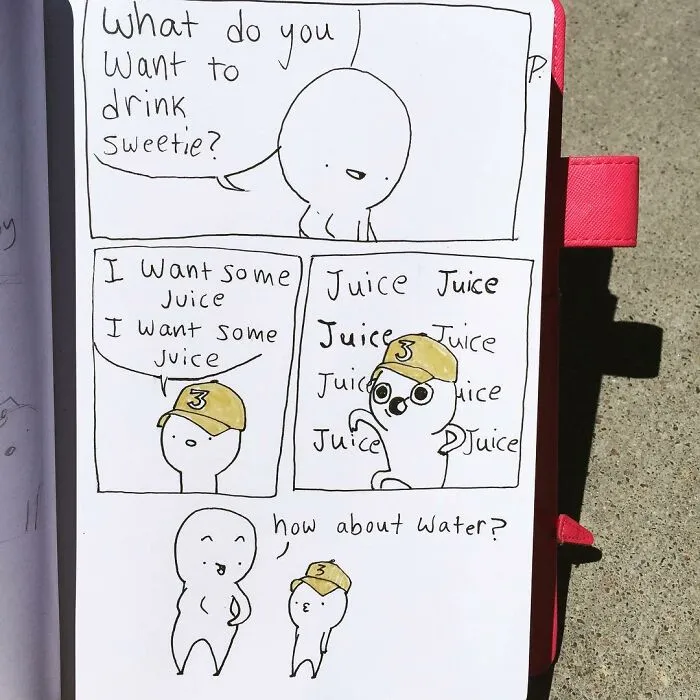 What do you
Want to
drink
sweetie?
P.
I want some
Juice
I want some
Juice
3
Juice Juice
Juice Juice
3
Juice
Juice Juice
how about water?
3